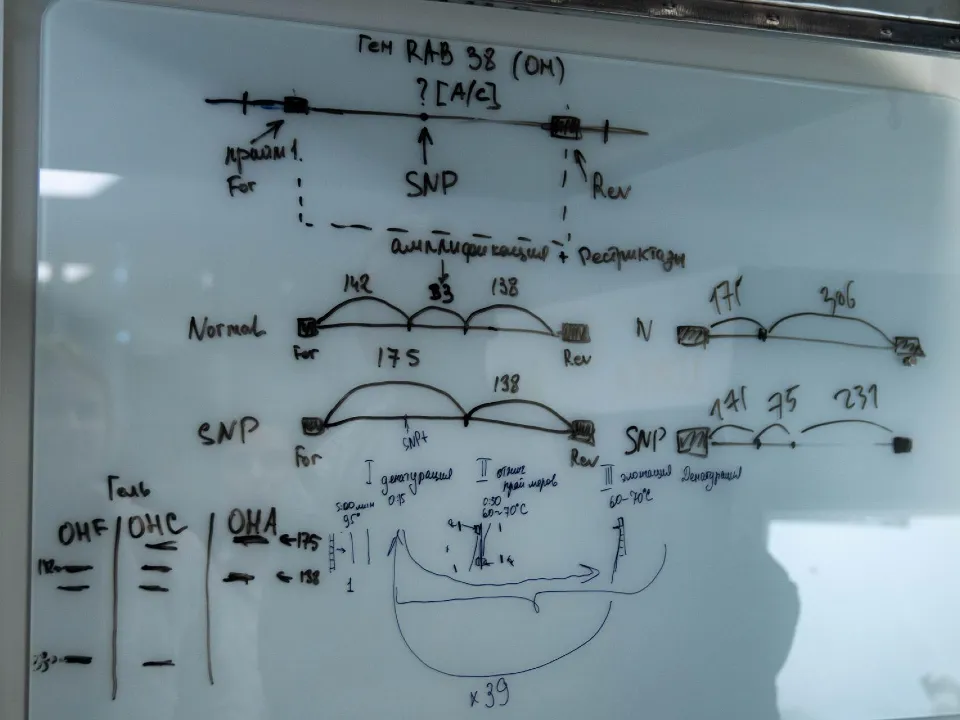 Ген RAB 38 (OH)
? [A/C]
прайм 1.
For
SNP
Rev
амплификация + Рестриктазы
142 33 138
Normal
For
Rev
175 138
SNP
SNP+
For
Rev
N
171 306
SNP
171 75 231
Гель
OHF OHC OHA
175
138
I денатурация
5:00 мин
95°
0:15
II отжиг
праймеров
0:30
60-70°C
III элонгация
60-70°C
Денатурация
1
x 39